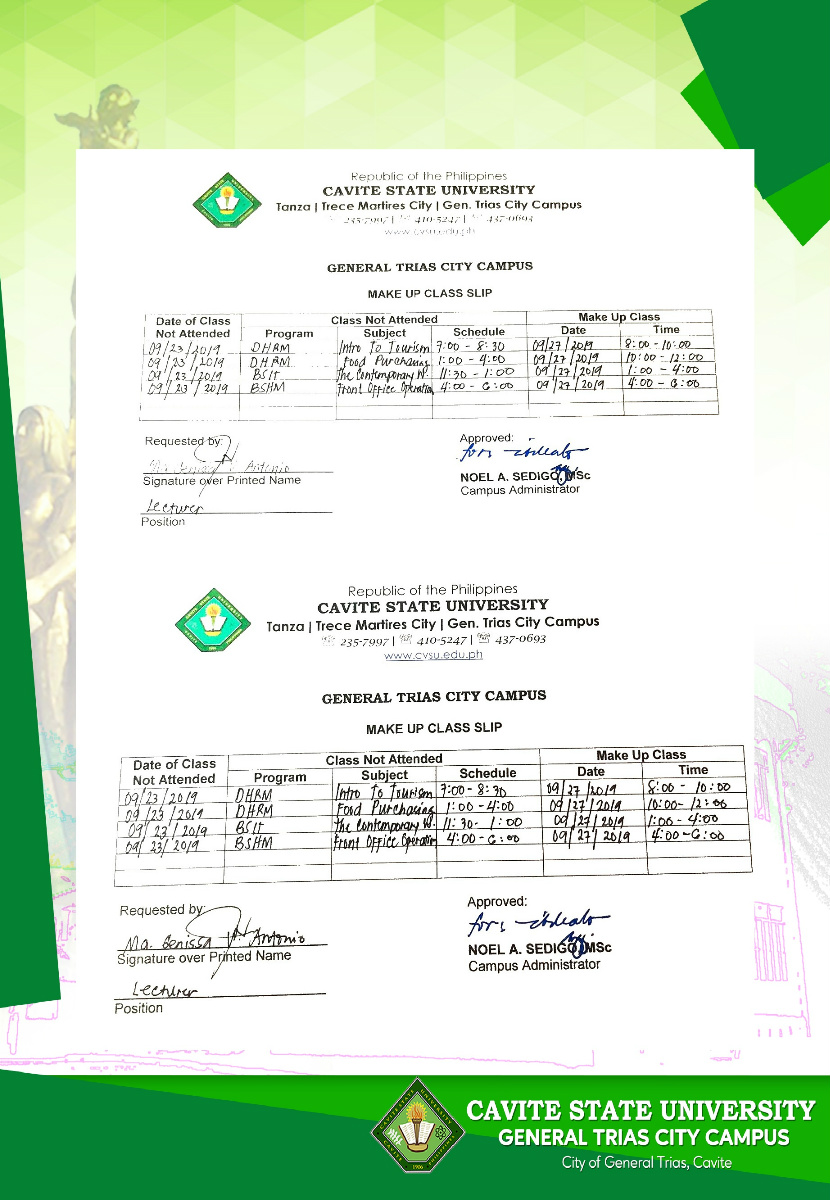 Republic of the Philippines
CAVITE STATE UNIVERSITY
Tanza | Trece Martires City | Gen. Trias City Campus
235-7997 | 410-5247 | 437-0693
www.cvsu.edu.ph
GENERAL TRIAS CITY CAMPUS
MAKE UP CLASS SLIP
Date of Class Not Attended Class Not Attended Make Up Class
Program Subject Schedule Date Time
09/23/2019 DHRM Intro To Tourism 7:00 - 8:30 09/27/2019 8:00 - 10:00
09/23/2019 DHRM Food Purchasing 1:00 - 4:00 09/27/2019 10:00 - 12:00
09/23/2019 BSIT The Contemporary W. 11:30 - 1:00 09/27/2019 1:00 - 4:00
09/23/2019 BSHM Front Office Operation 4:00 - 6:00 09/27/2019 4:00 - 6:00
Requested by: Approved:
Antonio
Signature over Printed Name
NOEL A. SEDIGO, MSc
Campus Administrator
Lecturer
Position
Republic of the Philippines
CAVITE STATE UNIVERSITY
Tanza | Trece Martires City | Gen. Trias City Campus
235-7997 | 410-5247 | 437-0693
www.cvsu.edu.ph
GENERAL TRIAS CITY CAMPUS
MAKE UP CLASS SLIP
Date of Class Not Attended Class Not Attended Make Up Class
Program Subject Schedule Date Time
09/23/2019 DHRM Intro To Tourism 7:00 - 8:30 09/27/2019 8:00 - 10:00
09/23/2019 DHRM Food Purchasing 1:00 - 4:00 09/27/2019 10:00 - 12:00
09/23/2019 BSIT The Contemporary W. 11:30 - 1:00 09/27/2019 1:00 - 4:00
09/23/2019 BSHM Front Office Operation 4:00 - 6:00 09/27/2019 4:00 - 6:00
Requested by: Approved:
Ma. Benissa Antonio
Signature over Printed Name
NOEL A. SEDIGO, MSc
Campus Administrator
Lecturer
Position
CAVITE STATE UNIVERSITY
GENERAL TRIAS CITY CAMPUS
City of General Trias, Cavite